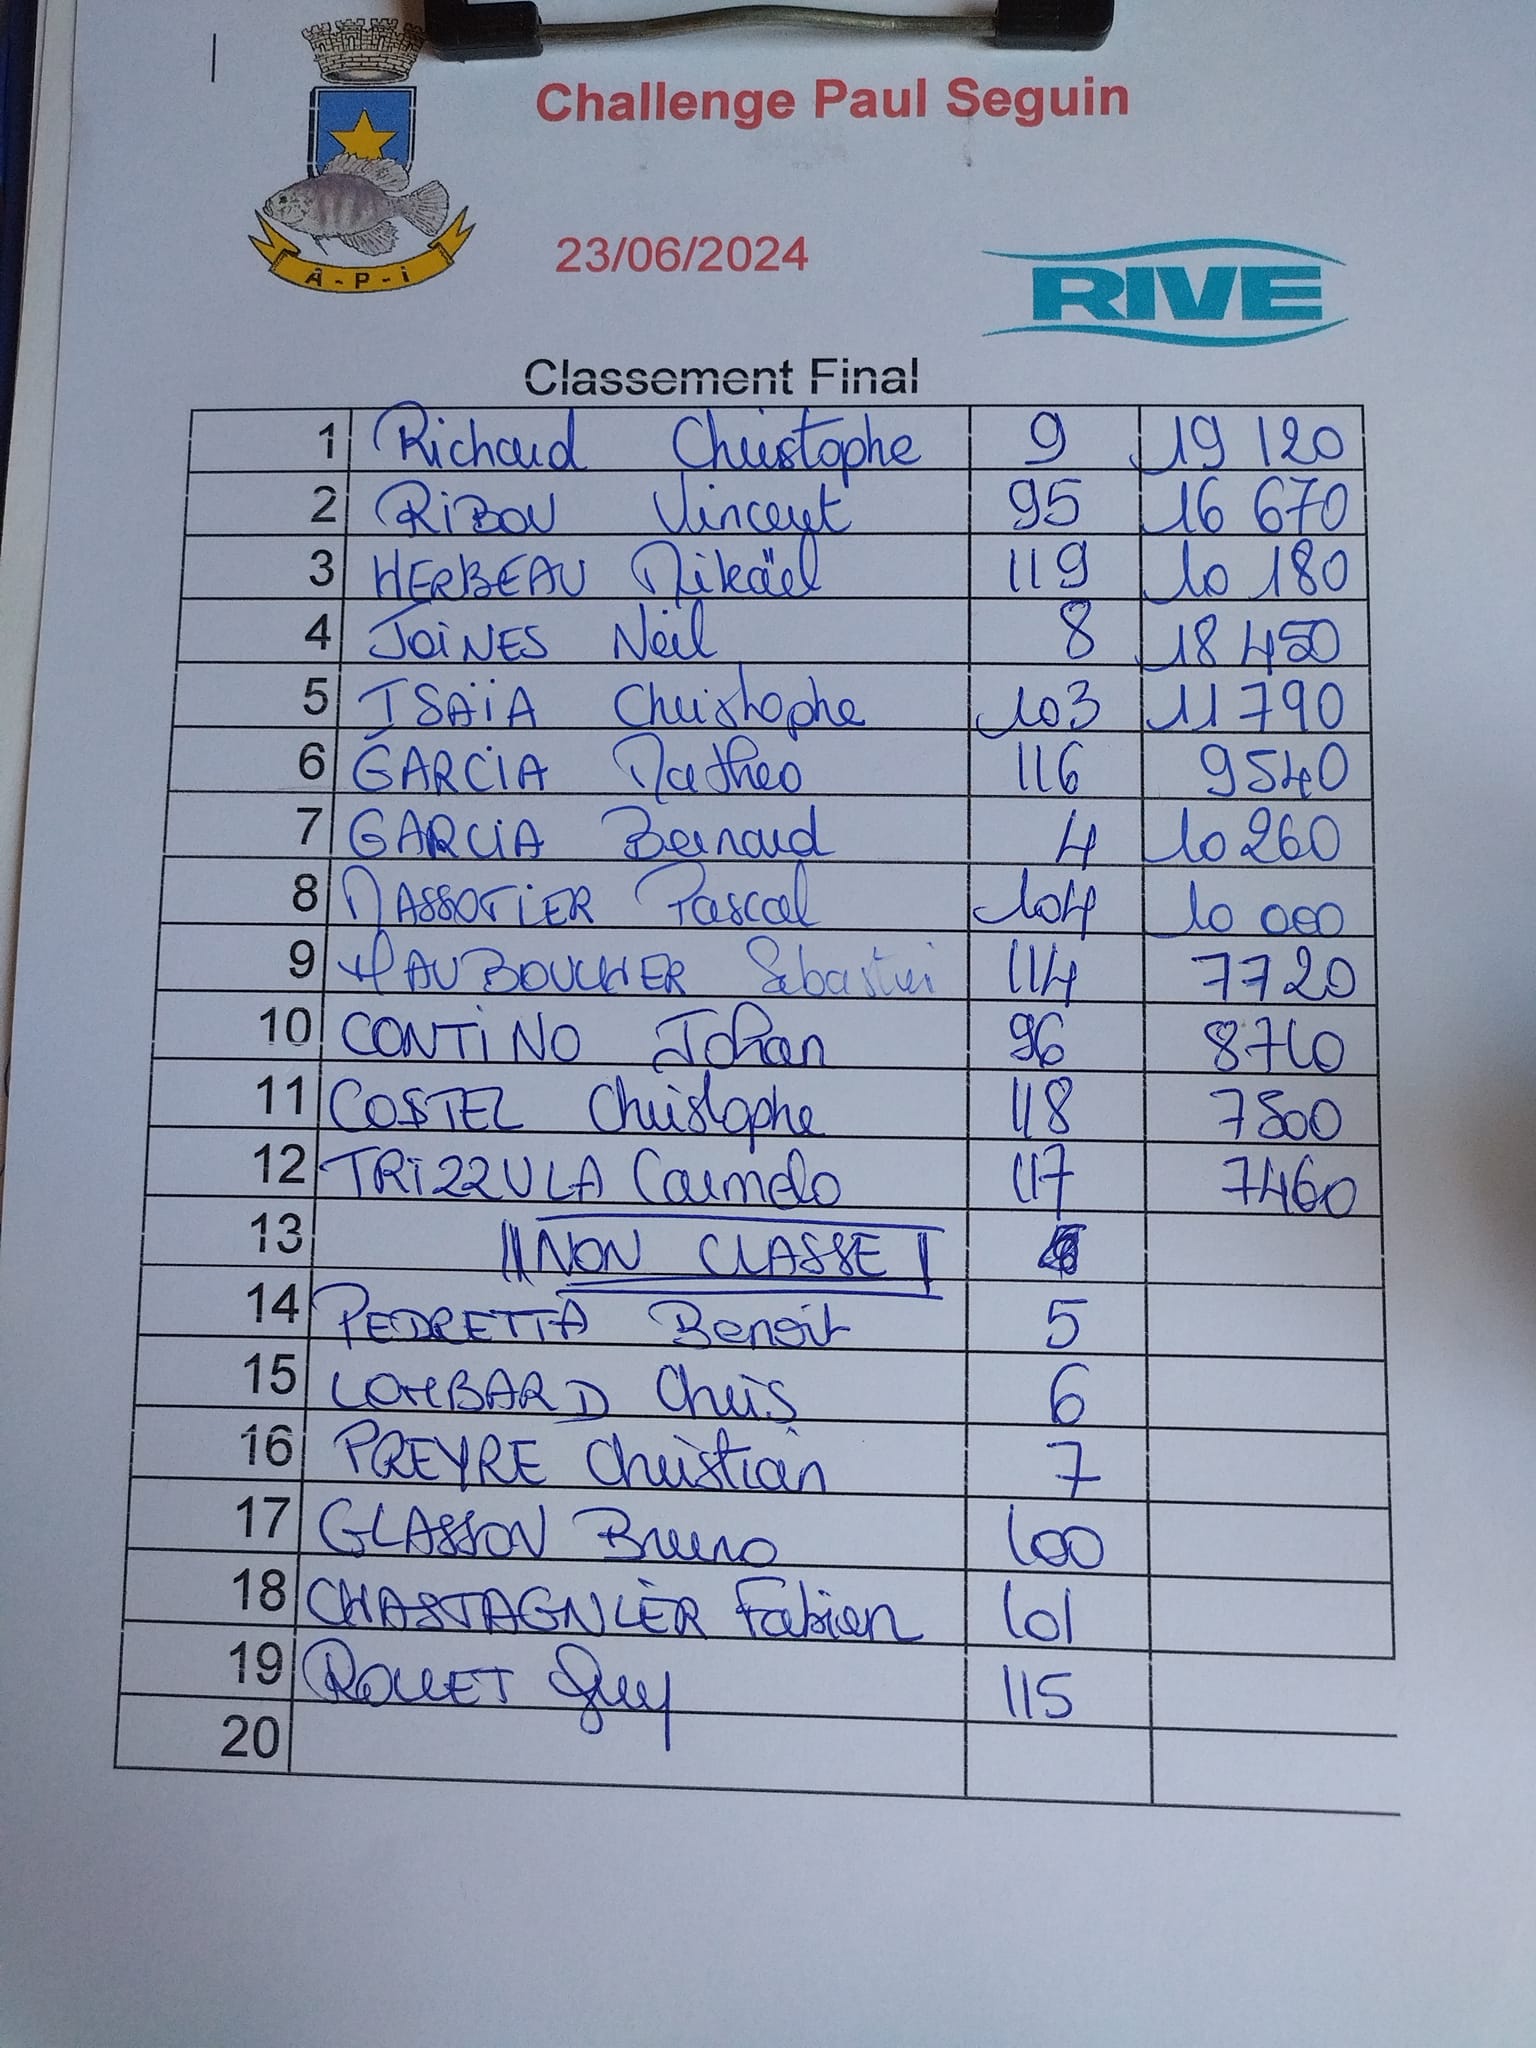 Challenge Paul Seguin
A-P-i
23/06/2024
RIVE
Classement Final
1 Richaud Christophe 9 19 120
2 RiBOU Vincent 95 16 670
3 HERBEAU Mikaël 119 10 180
4 JOiNES Neil 8 18 450
5 ISAÏA Christophe 103 11 790
6 GARCiA Matheo 116 9540
7 GARCiA Bernard 4 10 260
8 MASSOTiER Pascal 104 10 000
9 HAUBOUCHER Sebastien 114 7720
10 CONTiNO Johan 96 8710
11 COSTEL Christophe 118 7800
12 TRiZZULA Carmelo 117 7460
13 NON CLASSE
14 PEDRETTA Benoit 5
15 LOMBARD Chris 6
16 PREYRE Christian 7
17 GLASSON Bruno 100
18 CHASTAGNiER Fabien 101
19 ROUET Guy 115
20